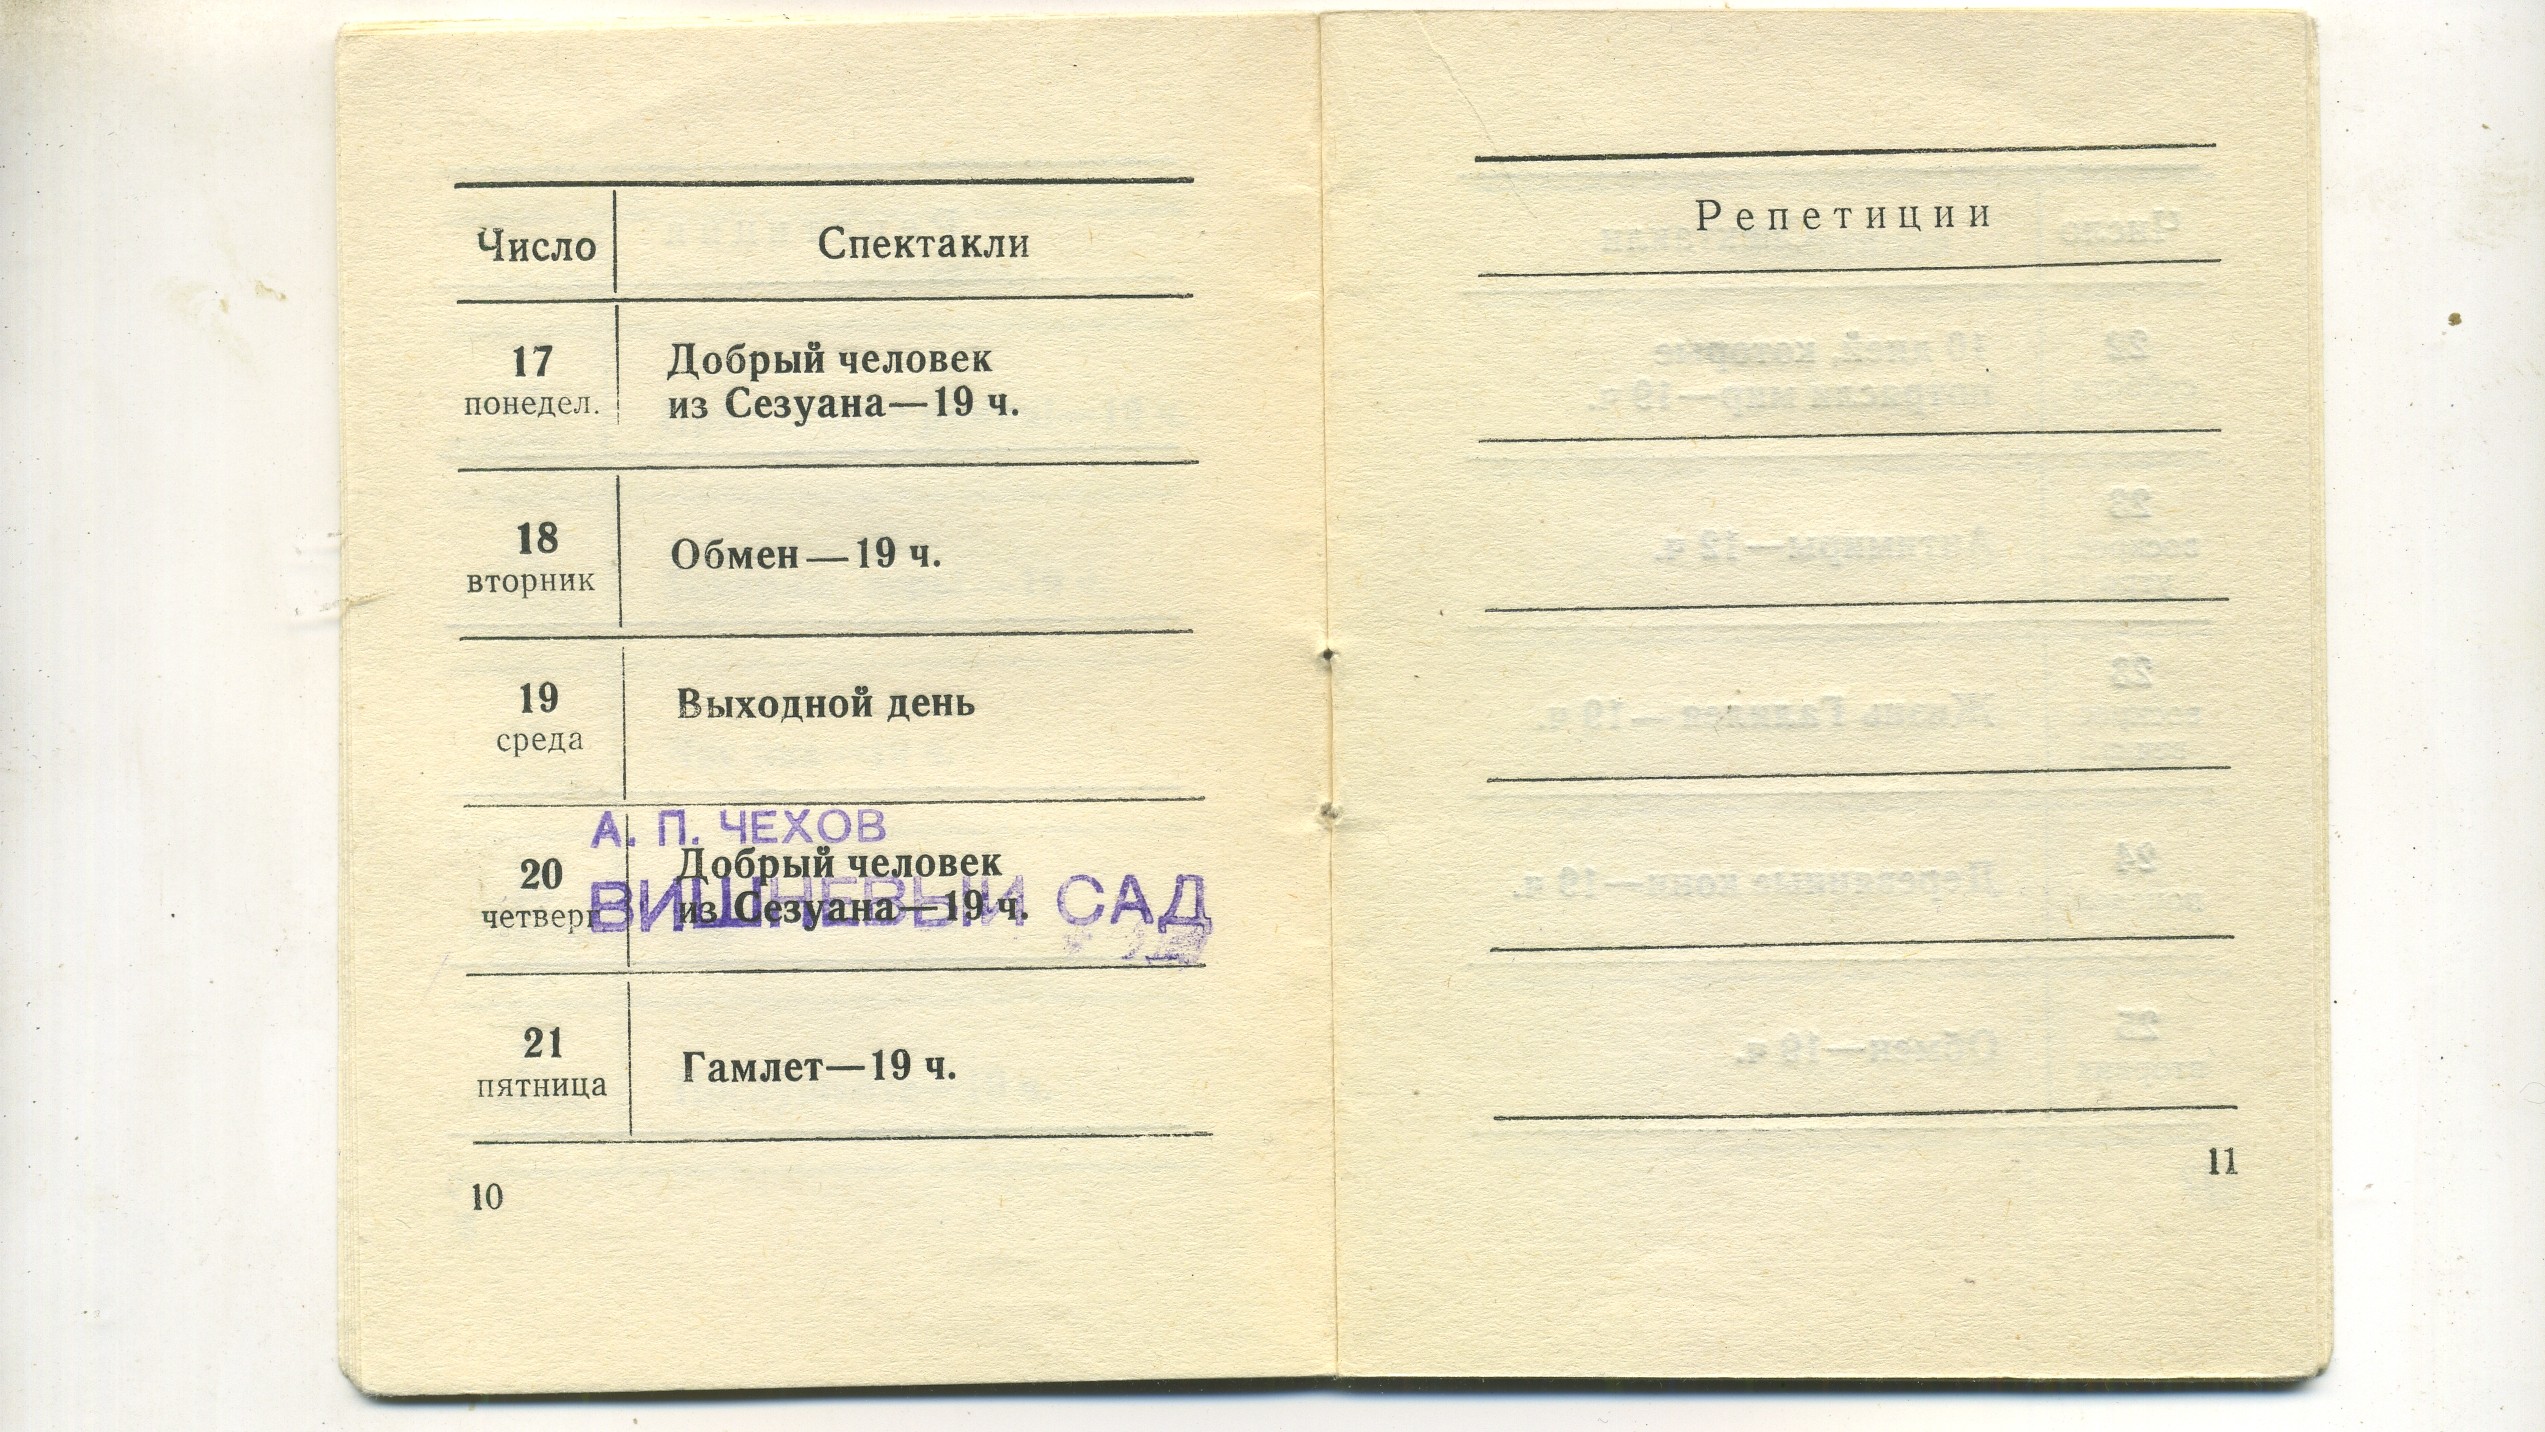 Число Спектакли
17 Добрый человек
понедел. из Сезуана—19 ч.
18
Обмен—19 ч.
вторник
19 Выходной день
среда
А. П. ЧЕХОВ
20 Добрый человек
четверг из Сезуана—19 ч.
ВИШНЕВЫЙ САД
21 Гамлет—19 ч.
пятница
10
Репетиции
11